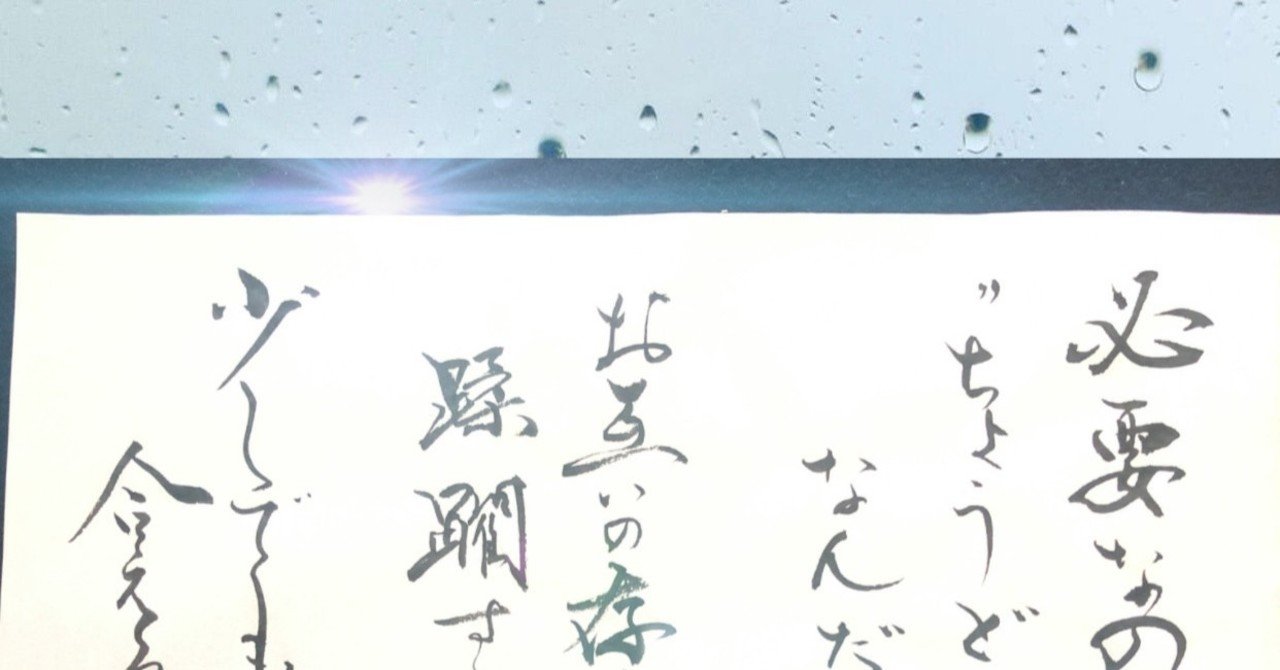 必要なの
”ちょうど
なんだ
お互いの存
蹂躙す
少しでも
合える